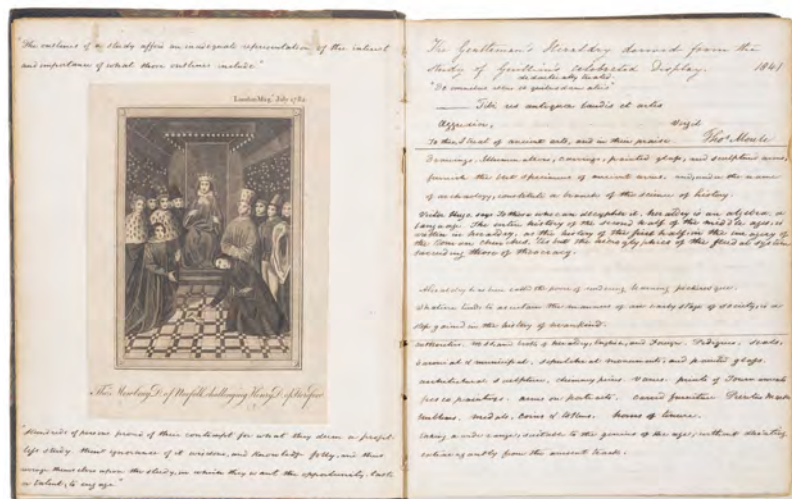 "The outlines of a study afford an inadequate representation of the interest
and importance of what those outlines include."
London Mag. July 1782
Thos. Mowbray D. of Norfolk challenging Henry D. of Hereford
"Hundreds of persons proud of their contempt for what they deem a profit-
less study, their ignorance of it wisdom, and knowledge folly, and thus
revenge themselves upon the study, in which they want the opportunity, taste
or talent, to engage."
The Gentleman's Heraldry derived from the
study of Guillim's celebrated Display. 1841
didactically treated
"De omnibus rebus et quibusdam aliis"
Tibi res antiquae laudis et artis
Aggredior, Virgil
To thee I treat of ancient arts, and in their praise. Thos. Moule
Drawings, illuminations, carvings, painted glass, and sculptured arms,
furnish the best specimens of ancient arms, and, under the name
of archaeology, constitute a branch of the science of history.
Victor Hugo says To those who can decypher it, heraldry is an algebra, a
language. The entire history of the second half of the middle ages, is
written in heraldry, as the history of the first half, in the imagery of
the Roman churches. Tis but the hieroglyphics of the feudal system
succeeding those of theocracy.
Heraldry has been called the science of rendering learning picturesque.
Whatever tends to ascertain the manners of an early stage of society, is a
step gained in the history of mankind.
Authorities. Ms and books of heraldry, English, and Foreign. Pedigrees, seals,
baronial & municipal, sepulchral monuments, and painted glass,
architectural sculpture, chimney pieces. Vanes. prints of Tournaments
fresco paintings. arms on portraits. carved furniture Printers Marks
Emblems. medals, coins & tokens. horns of tenure.
taking a wide range, suitable to the genius of the ages; without deviating
extravagantly from the ancient track.